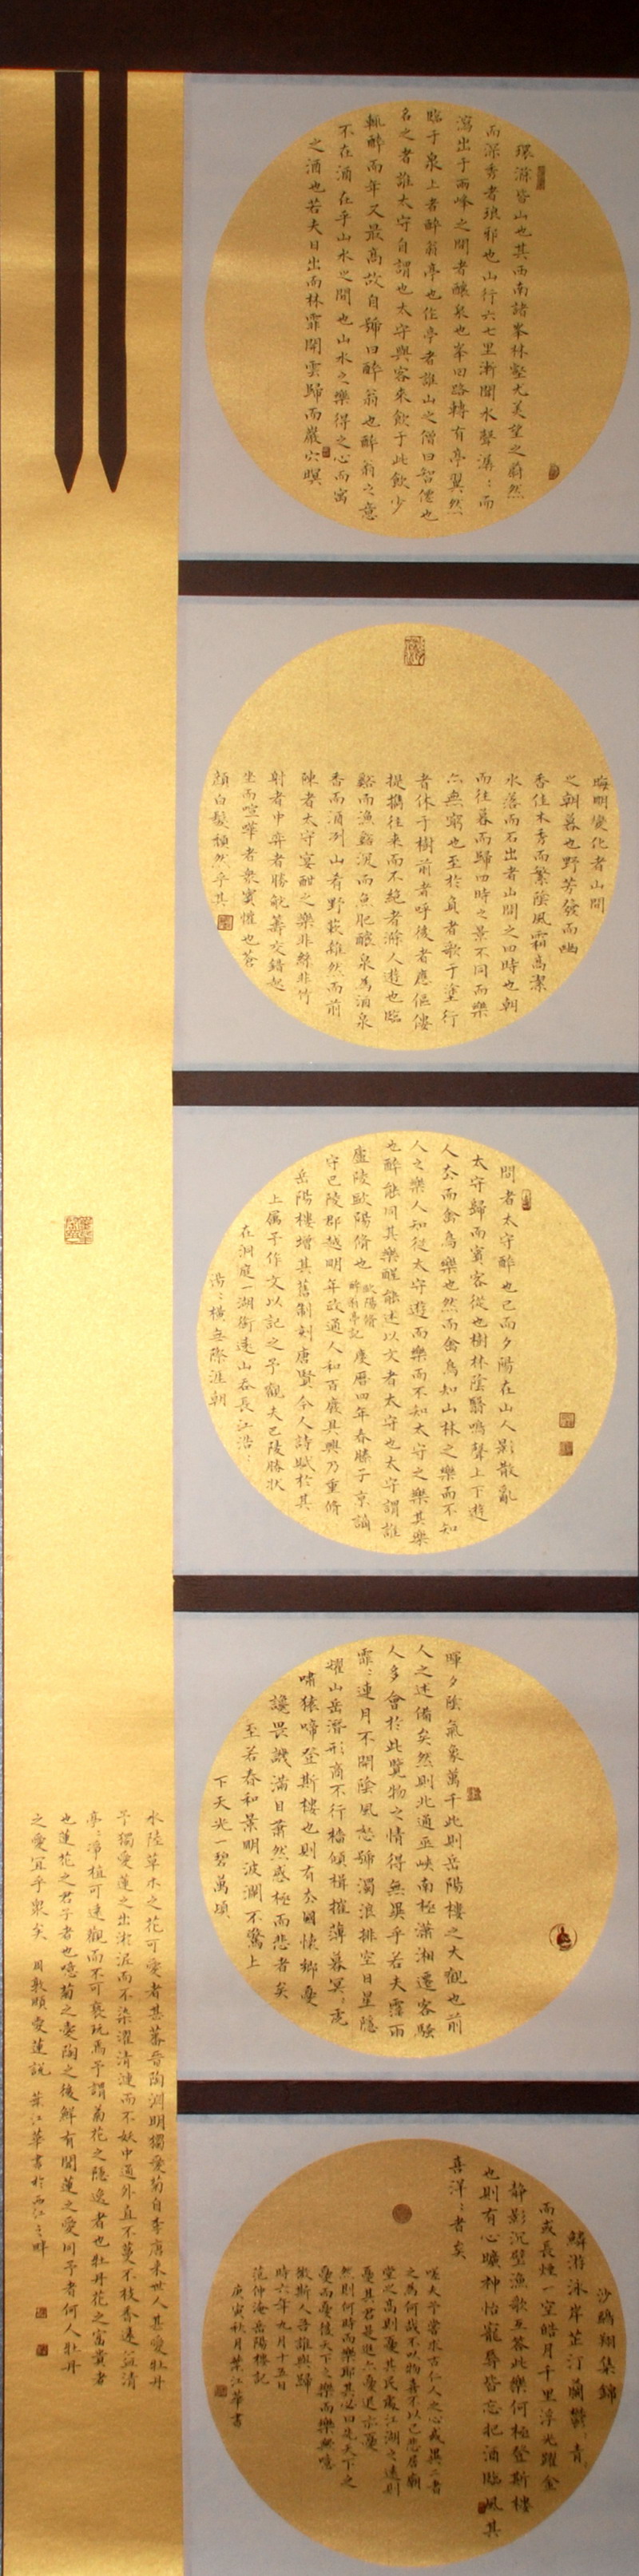 環滁皆山也其西南諸峯林壑尤美望之蔚然
而深秀者琅邪也山行六七里漸聞水聲潺:而
瀉出于兩峰之間者釀泉也峯回路轉有亭翼然
臨于泉上者醉翁亭也作亭者誰山之僧曰智僊也
名之者誰太守自謂也太守與客來飲于此飲少
輒醉而年又最高故自號曰醉翁也醉翁之意
不在酒在乎山水之間也山水之樂得之心而寓
之酒也若夫日出而林霏開雲歸而巖穴暝
晦明變化者山間
之朝暮也野芳發而幽
香佳木秀而繁陰風霜高潔
水落而石出者山間之四時也朝
而往暮而歸四時之景不同而樂
亦無窮也至於負者歌于塗行
者休于樹前者呼後者應傴僂
提攜往來而不絕者滁人遊也臨
谿而漁谿深而魚肥釀泉為酒泉
香而酒洌山肴野蔌雜然而前
陳者太守宴酣之樂非絲非竹
射者中弈者勝觥籌交錯起
坐而喧譁者衆賓懽也蒼
顏白髮頹然乎其
間者太守醉也已而夕陽在山人影散亂
太守歸而賓客從也樹林陰翳鳴聲上下遊
人去而禽鳥樂也然而禽鳥知山林之樂而不知
人之樂人知從太守遊而樂而不知太守之樂其樂
也醉能同其樂醒能述以文者太守也太守謂誰
廬陵歐陽脩也 歐陽脩醉翁亭記 慶曆四年春滕子京謫
守巴陵郡越明年政通人和百廢具興乃重脩
岳陽樓增其舊制刻唐賢今人詩賦於其
上属予作文以記之予觀夫巴陵勝狀
在洞庭一湖銜遠山吞長江浩:
湯:橫無際涯朝
暉夕陰氣象萬千此則岳陽樓之大觀也前
人之述備矣然則北通巫峽南極瀟湘遷客騷
人多會於此覽物之情得無異乎若夫霪雨
霏:連月不開陰風怒號濁浪排空日星隱
耀山岳潛形商不行檣傾楫摧薄暮冥:虎
嘯猿啼登斯樓也則有去國懷鄉憂
讒畏譏滿目蕭然感極而悲者矣
至若春和景明波瀾不驚上
下天光一碧萬頃
沙鷗翔集錦
鱗游泳岸芷汀蘭鬱:青:
而或長煙一空皓月千里浮光躍金
静影沉璧漁歌互答此樂何極登斯樓
也則有心曠神怡寵辱皆忘把酒臨風其
喜洋:者矣
嗟夫予嘗求古仁人之心或異二者
之為何哉不以物喜不以己悲居廟
堂之高則憂其民處江湖之遠則
憂其君是進亦憂退亦憂
然則何時而樂耶其必曰先天下之
憂而憂後天下之樂而樂歟噫
微斯人吾誰與歸
時六年九月十五日
范仲淹岳陽樓記
庚寅秋月葉江華書
水陸草木之花可愛者甚蕃晉陶淵明獨愛菊自李唐來世人甚愛牡丹
予獨愛蓮之出淤泥而不染濯清漣而不妖中通外直不蔓不枝香遠益清
亭:淨植可遠觀而不可褻玩焉予謂菊花之隱逸者也牡丹花之富貴者
也蓮花之君子者也噫菊之愛陶之後鮮有聞蓮之愛同予者何人牡丹
之愛宜乎衆矣 周敦頤愛蓮說 葉江華書於西江之畔